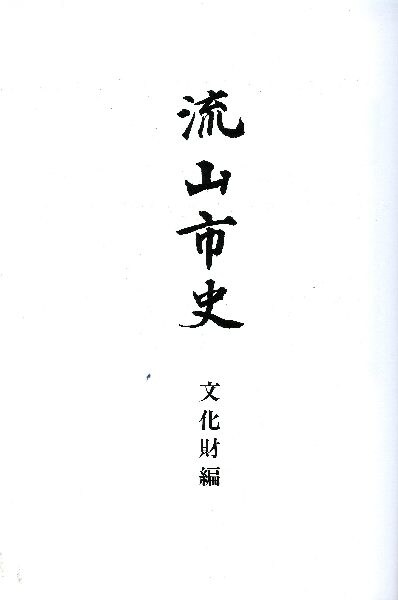 流山市史
文化財編